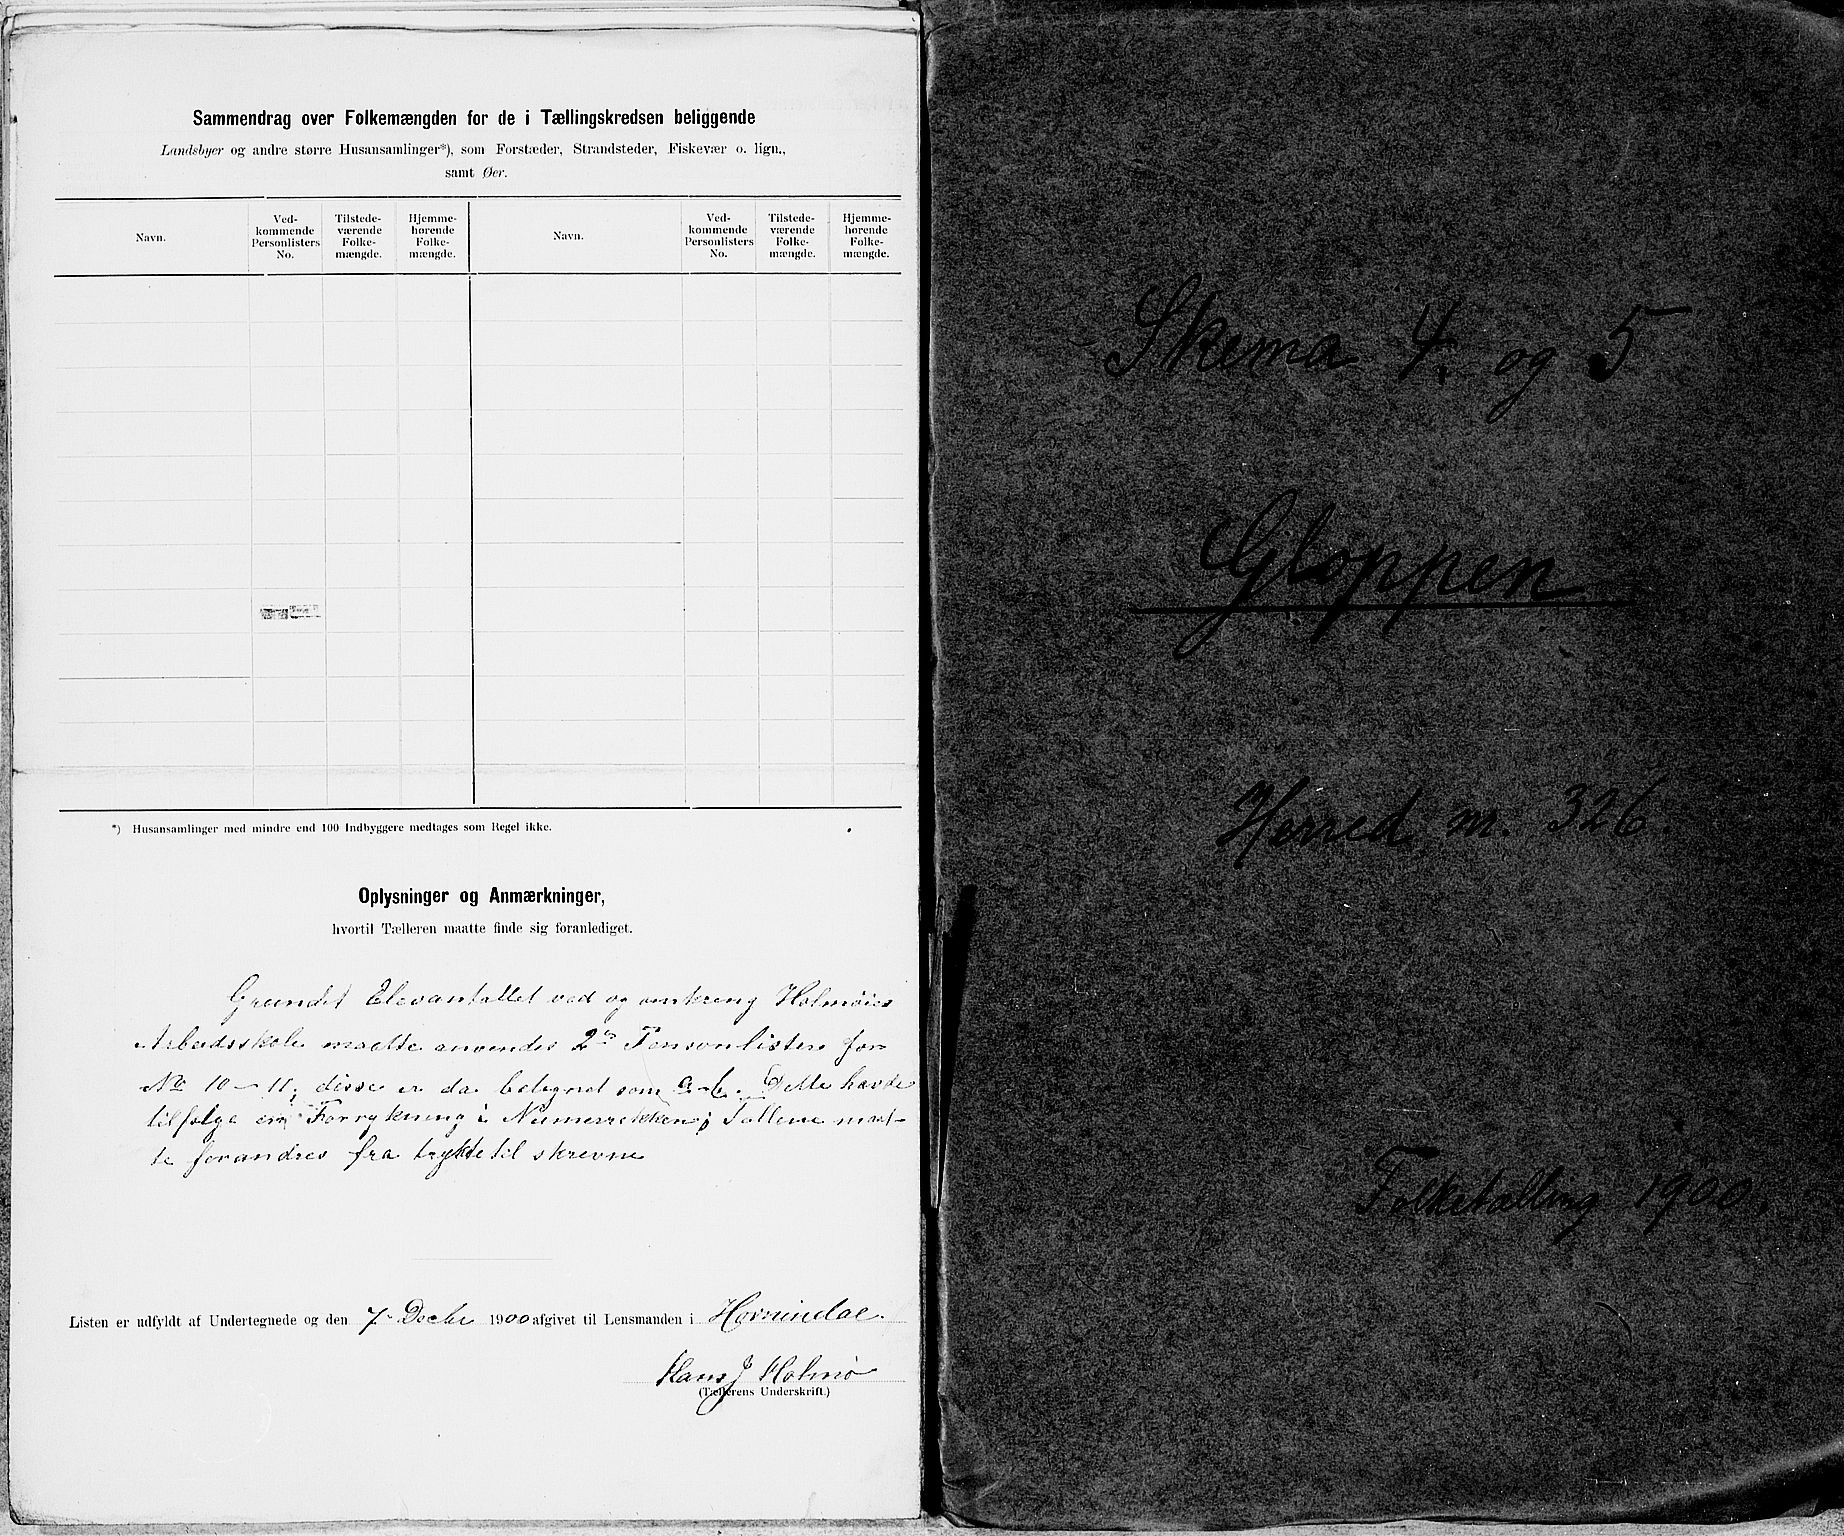 Sammendrag over Folkemængden for de i Tællingskredsen beliggende
Landsbyer og andre større Husansamlinger*), som Forstæder, Strandsteder, Fiskevær o. lign.,
samt Øer.
Navn.
Ved-
kommende
Personlisters
No.
Tilstede-
værende
Folke-
mængde.
Hjemme-
hørende
Folke-
mængde.
Navn.
Ved-
kommende
Personlisters
No.
Tilstede-
værende
Folke-
mængde.
Hjemme-
hørende
Folke-
mængde.
*) Husansamlinger med mindre end 100 Indbyggere medtages som Regel ikke.
Oplysninger og Anmærkninger,
hvortil Tælleren maatte finde sig foranlediget.
Grundet Elevantallet ved og omkring Holmøies
Arbeidsskole maatte anvendes 2 Personlister for
No 10-11; disse er da betegnet som a-b. Dette havde
tilfølge en Forrykning i Numerrekken; Tallene maat-
te forandres fra trykte til skrevne
Listen er udfyldt af Undertegnede og den 7 Decbr 1900 afgivet til Lensmanden i Hornindal.
Hans J Holmø
(Tællerens Underskrift.)
Skema 4. og 5
Gloppen
Herred nr. 326.
Folketælling 1900.